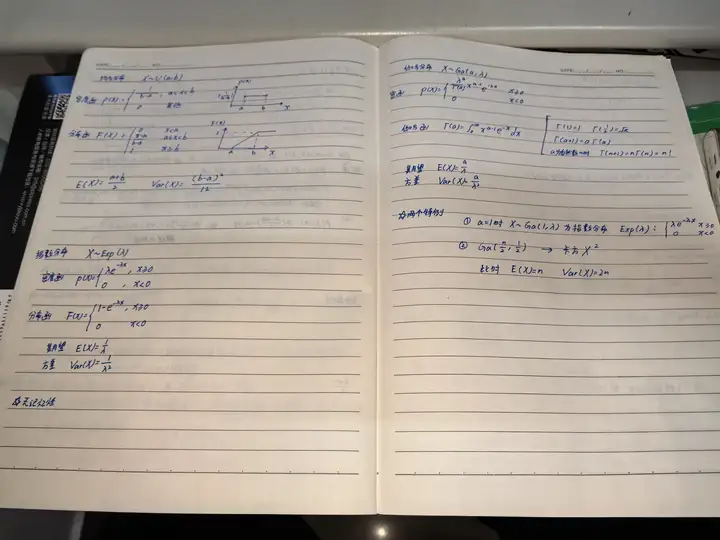 均匀分布 X~U(a,b)
密度函 p(x)={ 1/(b-a), a<x<b
0 其他
p(x)
1/(b-a)
a b x
分布函 F(x)={ 0 x<a
x-a/b-a a≤x<b
1 x≥b
F(x)
1
a b x
E(X)=a+b/2 Var(X)=(b-a)²/12
指数分布 X~Exp(λ)
密度函 p(x)={ λe^-λx, x≥0
0, x<0
分布函 F(x)={ 1-e^-λx, x≥0
0 x<0
期望 E(X)=1/λ
方差 Var(X)=1/λ²
无记忆性
伽马分布 X~Ga(a,λ)
p(x)={ λ^a/Γ(a) x^a-1 e^-λx x≥0
0 x<0
伽马函 Γ(a)=∫₀^∞ x^a-1 e^-x dx
Γ(1)=1 Γ(1/2)=√π
Γ(a+1)=aΓ(a)
Γ(n+1)=nΓ(n)=n!
期望 E(X)=a/λ
方差 Var(X)=a/λ²
两个特例
① a=1时 X~Ga(1,λ) 为指数分布 Exp(λ): { λe^-λx x≥0
0 x<0
② Ga(n/2, 1/2) → 卡方 X²
此时 E(X)=n Var(X)=2n